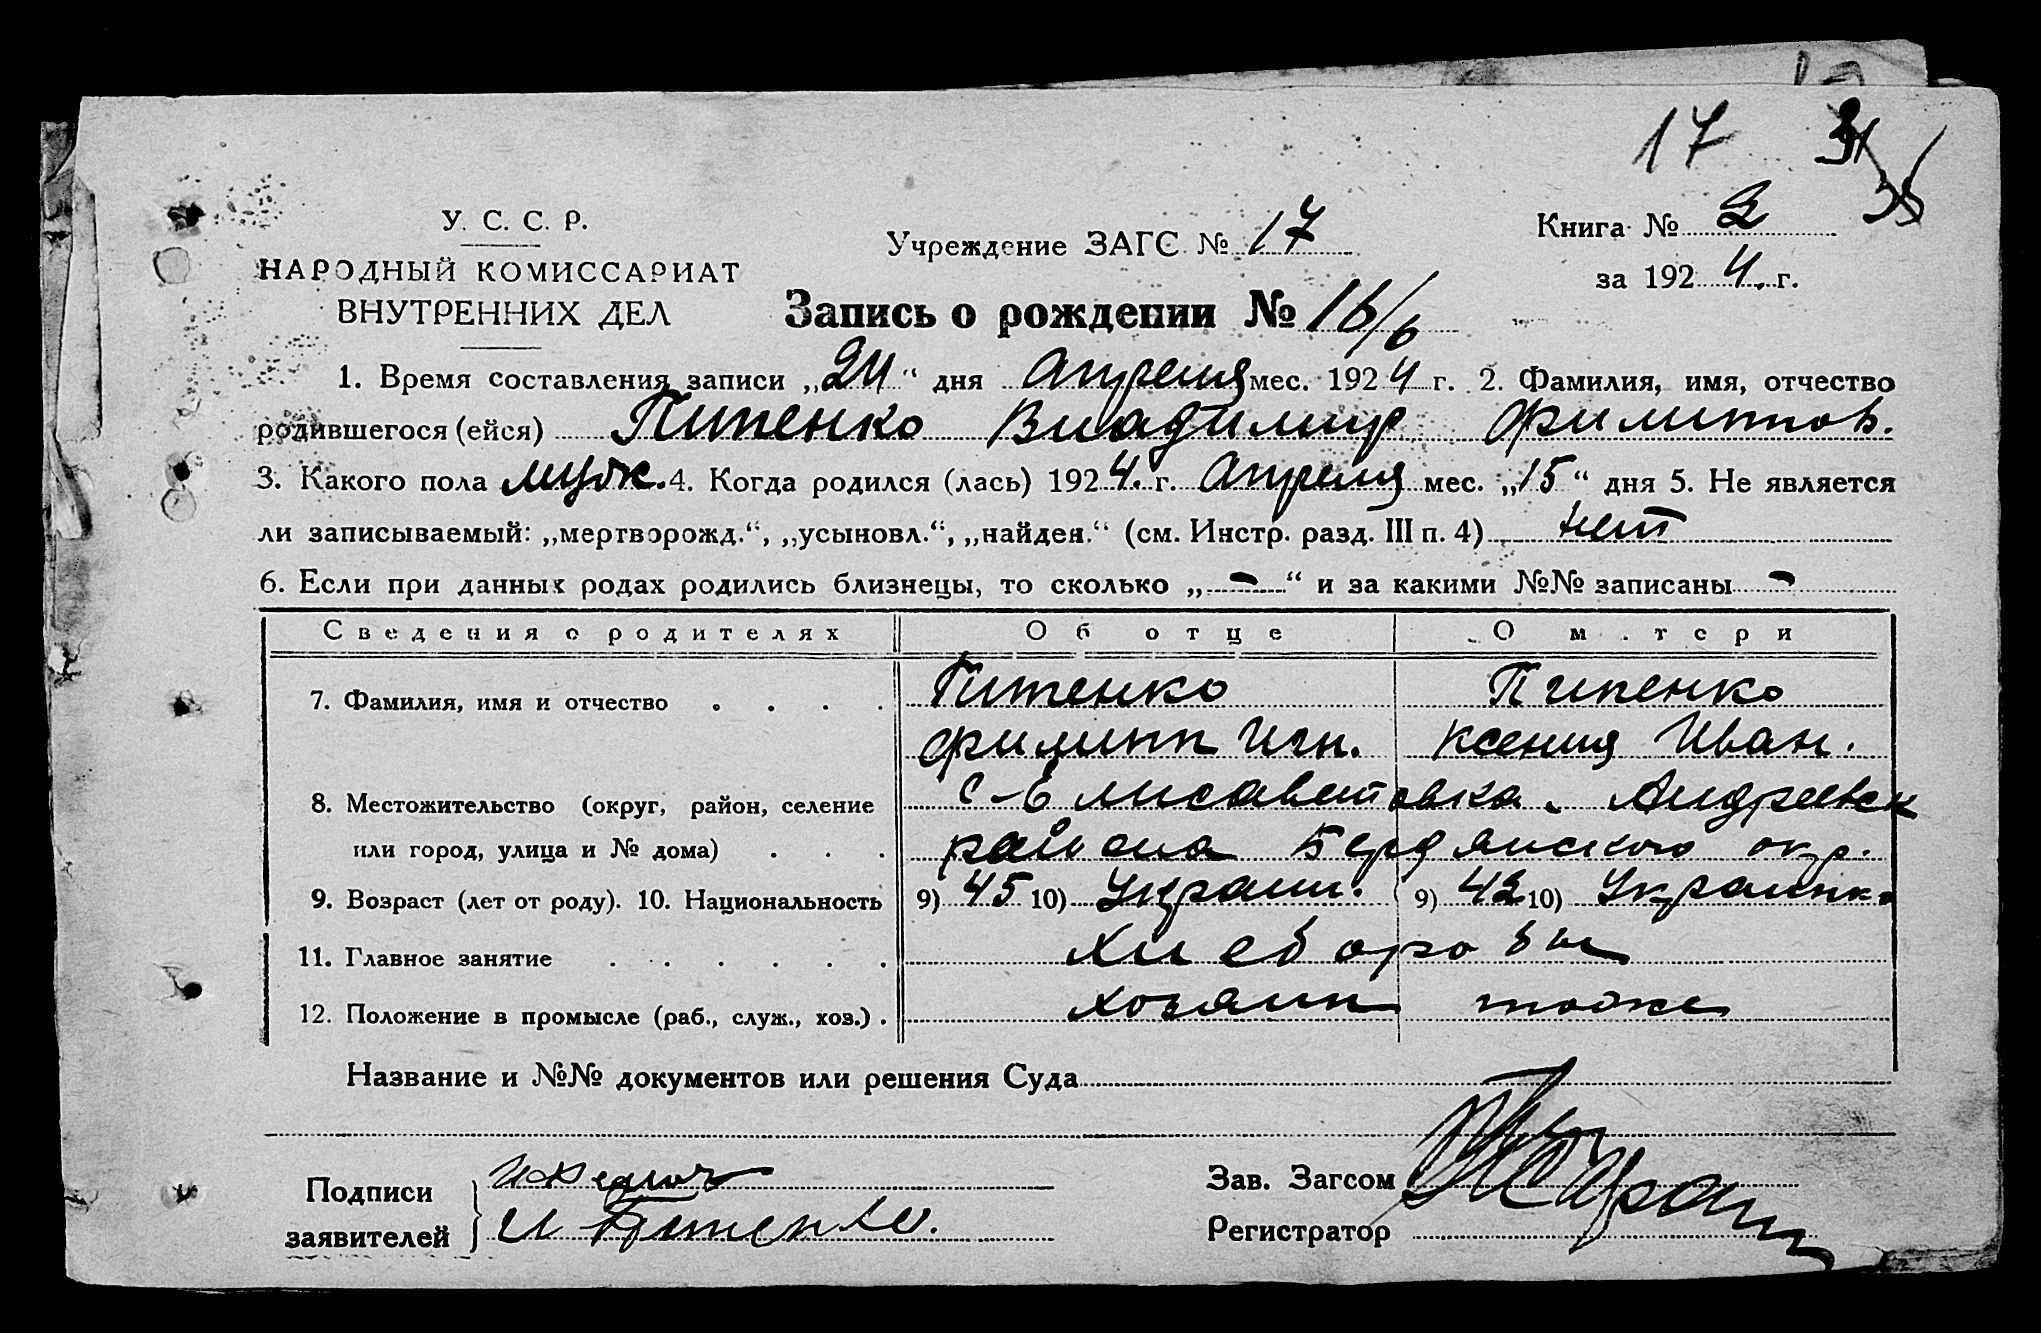 17 31
35
У. С. С. Р.
НАРОДНЫЙ КОМИССАРИАТ
ВНУТРЕННИХ ДЕЛ
Учреждение ЗАГС № 17
Книга № 2
за 1924 г.
Запись о рождении № 16/6
1. Время составления записи „24“ дня Апреля мес. 1924 г. 2. Фамилия, имя, отчество
родившегося (ейся) Пипенко Владимир Филиппов.
3. Какого пола муж. 4. Когда родился (лась) 1924 г. Апреля мес. „15“ дня 5. Не является
ли записываемый: „мертворожд.“, „усыновл.“, „найден.“ (см. Инстр. разд. III п. 4) нет
6. Если при данных родах родились близнецы, то сколько „-“ и за какими №№ записаны -
Сведения о родителях Об отце О матери
7. Фамилия, имя и отчество . . . . Пипенко Пипенко
Филипп Игн. Ксения Иван.
8. Местожительство (округ, район, селение с-Елисаветовка. Андреевск
или город, улица и № дома) . . . района Бердянского окр.
9. Возраст (лет от роду). 10. Национальность 9) 45 10) Украин. 9) 42 10) Украинка
11. Главное занятие . . . . . . Хлеборобы
12. Положение в промысле (раб., служ., хоз.) . хозяин тоже
Название и №№ документов или решения Суда
Подписи
заявителей
и Пипенко.
Зав. Загсом
Регистратор